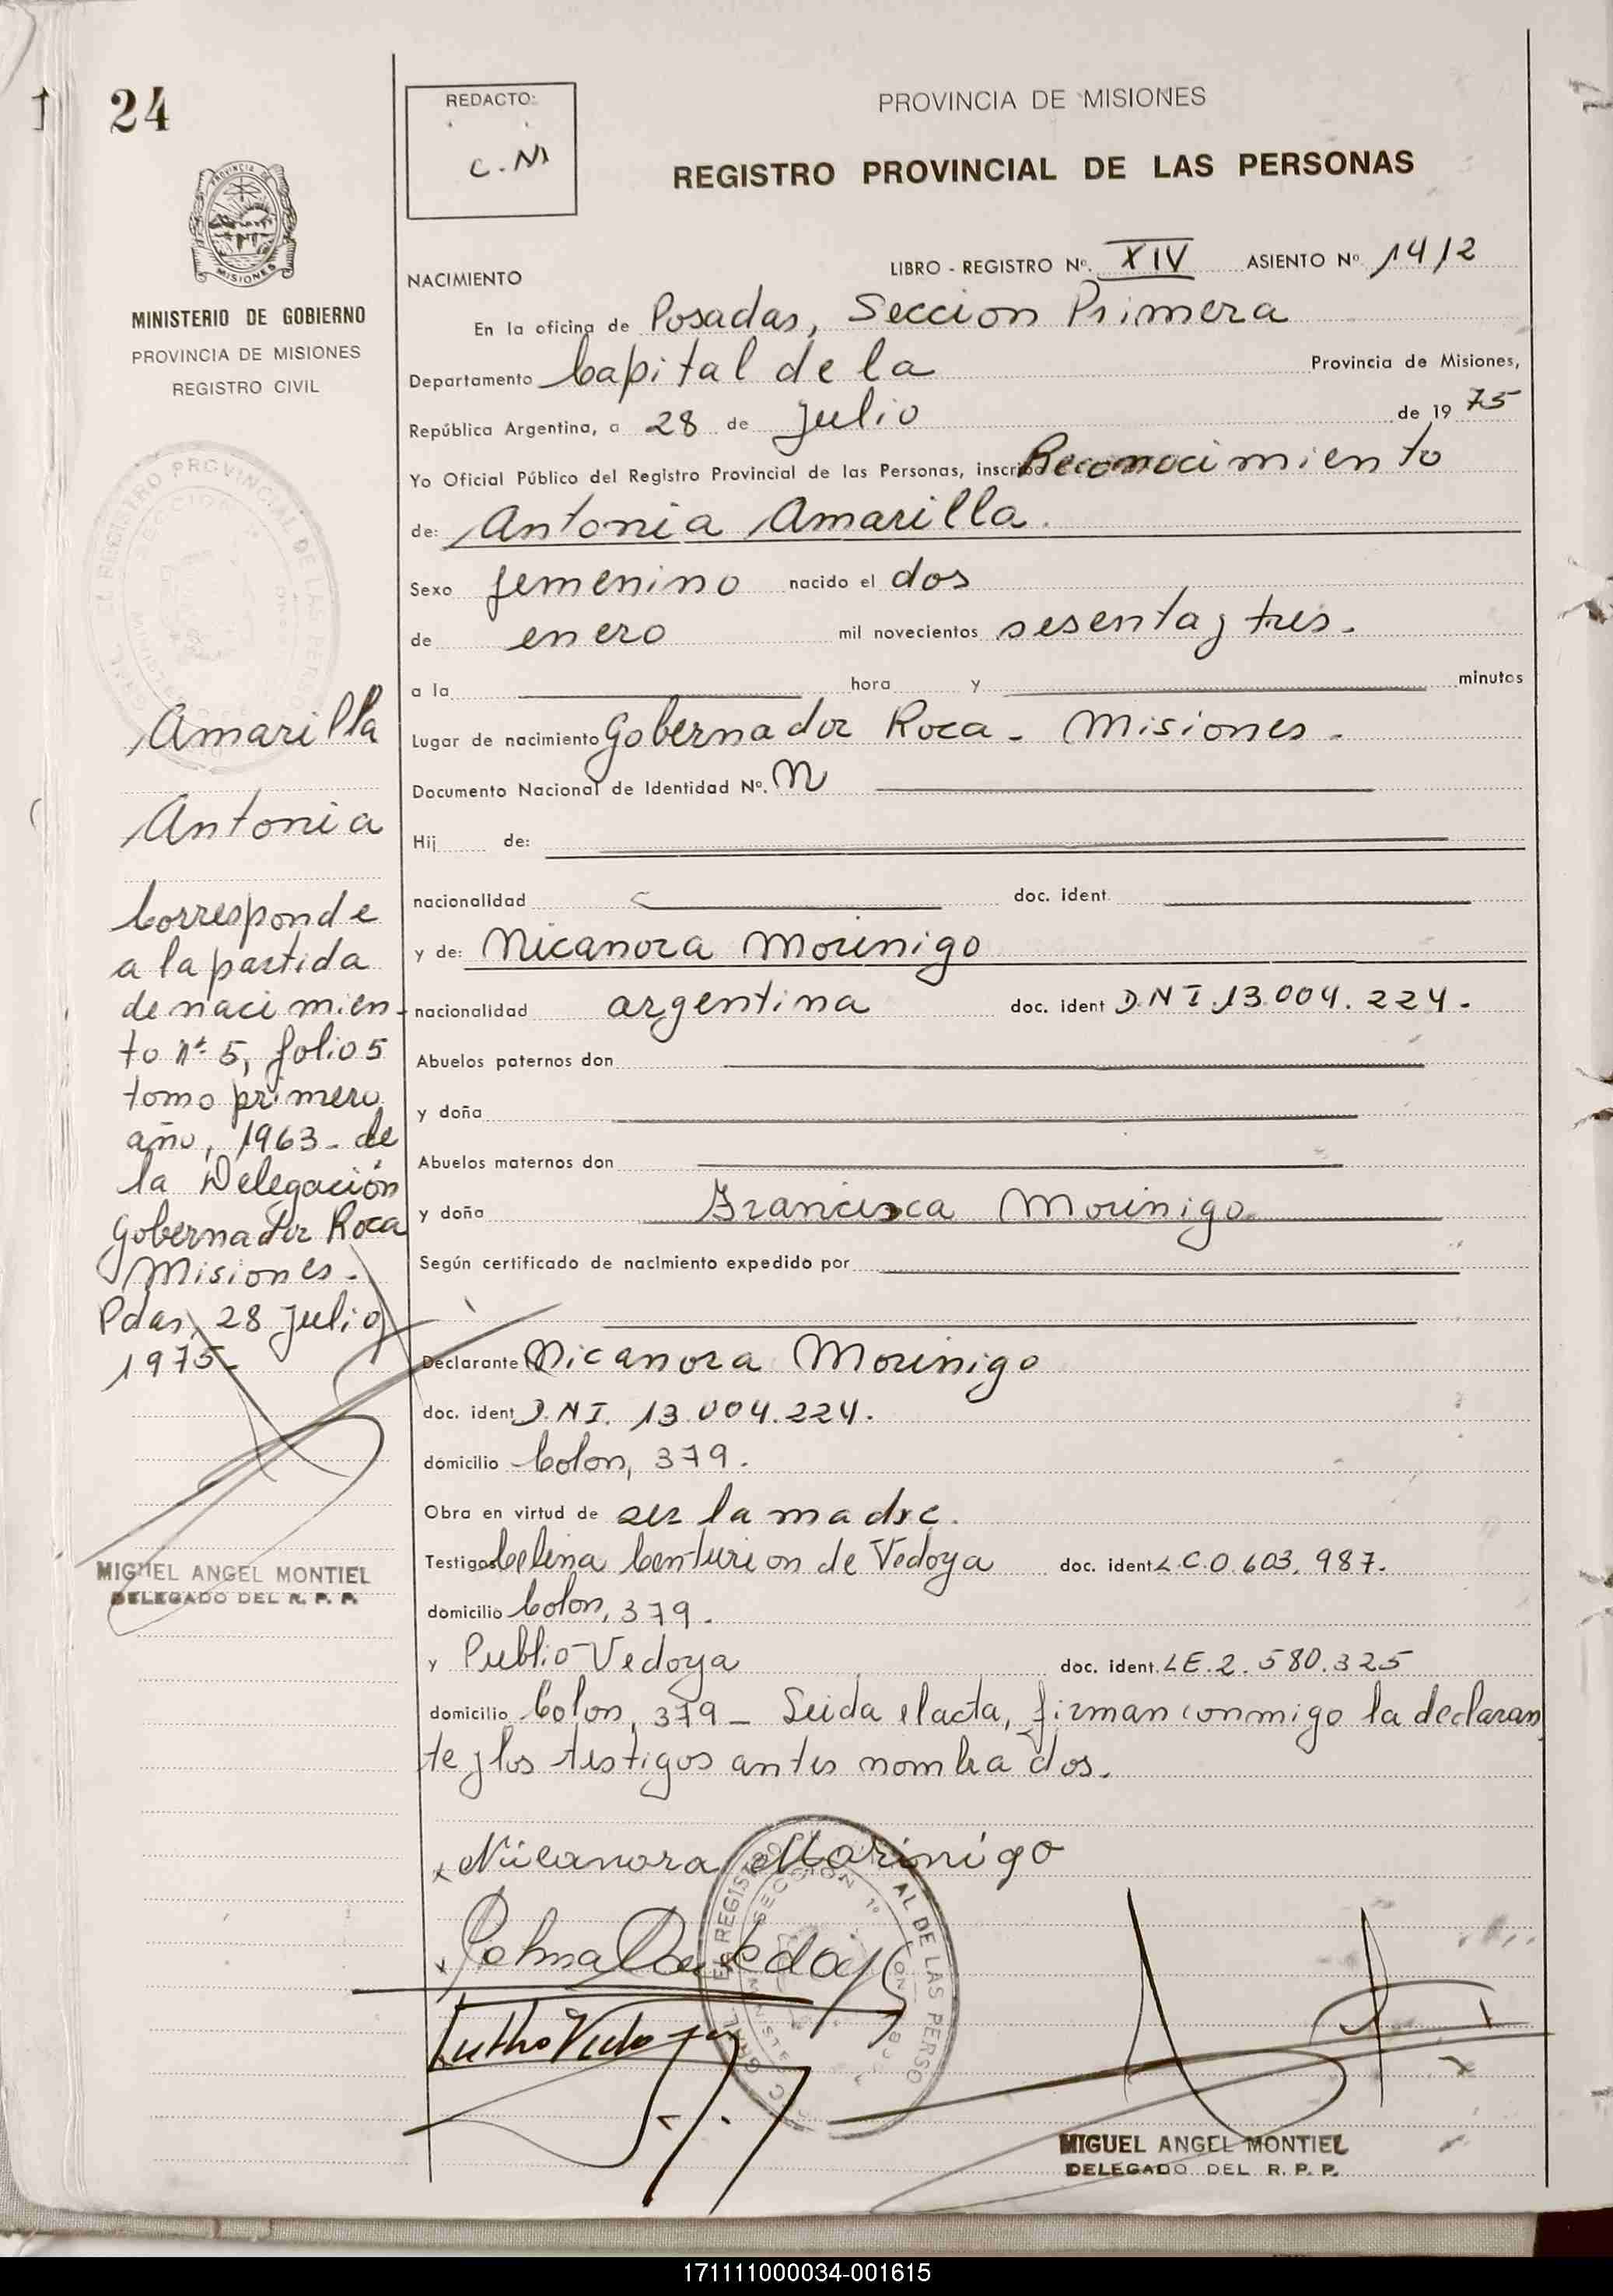 24
REDACTO:
C.N.
PROVINCIA DE MISIONES
REGISTRO PROVINCIAL DE LAS PERSONAS
MISIONES
MINISTERIO DE GOBIERNO
PROVINCIA DE MISIONES
REGISTRO CIVIL
Amarilla
Antonia
Corresponde
a la partida
de nacimien-
to nº 5, folio 5
tomo primero
año, 1963 - de
la Delegación
Gobernador Roca
Misiones.
Pdas, 28 Julio
1975-
MIGUEL ANGEL MONTIEL
DELEGADO DEL R. P. P.
NACIMIENTO
LIBRO - REGISTRO Nº. XIV ASIENTO Nº 1412
En la oficina de Posadas, Seccion Primera
Departamento Capital de la Provincia de Misiones,
República Argentina, a 28 de Julio de 1975
Yo Oficial Público del Registro Provincial de las Personas, inscribo Reconocimiento
de: Antonia Amarilla.
Sexo femenino nacido el dos
de enero mil novecientos sesenta y tres.
a la hora y minutos
Lugar de nacimiento Gobernador Roca - Misiones.
Documento Nacional de Identidad Nº. N
Hij de:
nacionalidad doc. ident.
y de: Nicanora Morinigo
nacionalidad argentina doc. ident D.N I.13.004.224.
Abuelos paternos don
y doña
Abuelos maternos don
y doña Francisca Morinigo
Según certificado de nacimiento expedido por
Declarante Nicanora Morinigo
doc. ident D.N I. 13.004.224.
domicilio Colon, 379.
Obra en virtud de ser la madre.
Testigos Celina Centurion de Vedoya doc. ident L.C.0.603.987.
domicilio Colon, 379.
y Publio Vedoya doc. ident. LE.2.580.325
domicilio Colon, 379 - Leida el acta, firman conmigo la declaran
te y los testigos antes nombrados.
x Nicanora Morinigo
MIGUEL ANGEL MONTIEL
DELEGADO DEL R. P. P.
171111000034-001615